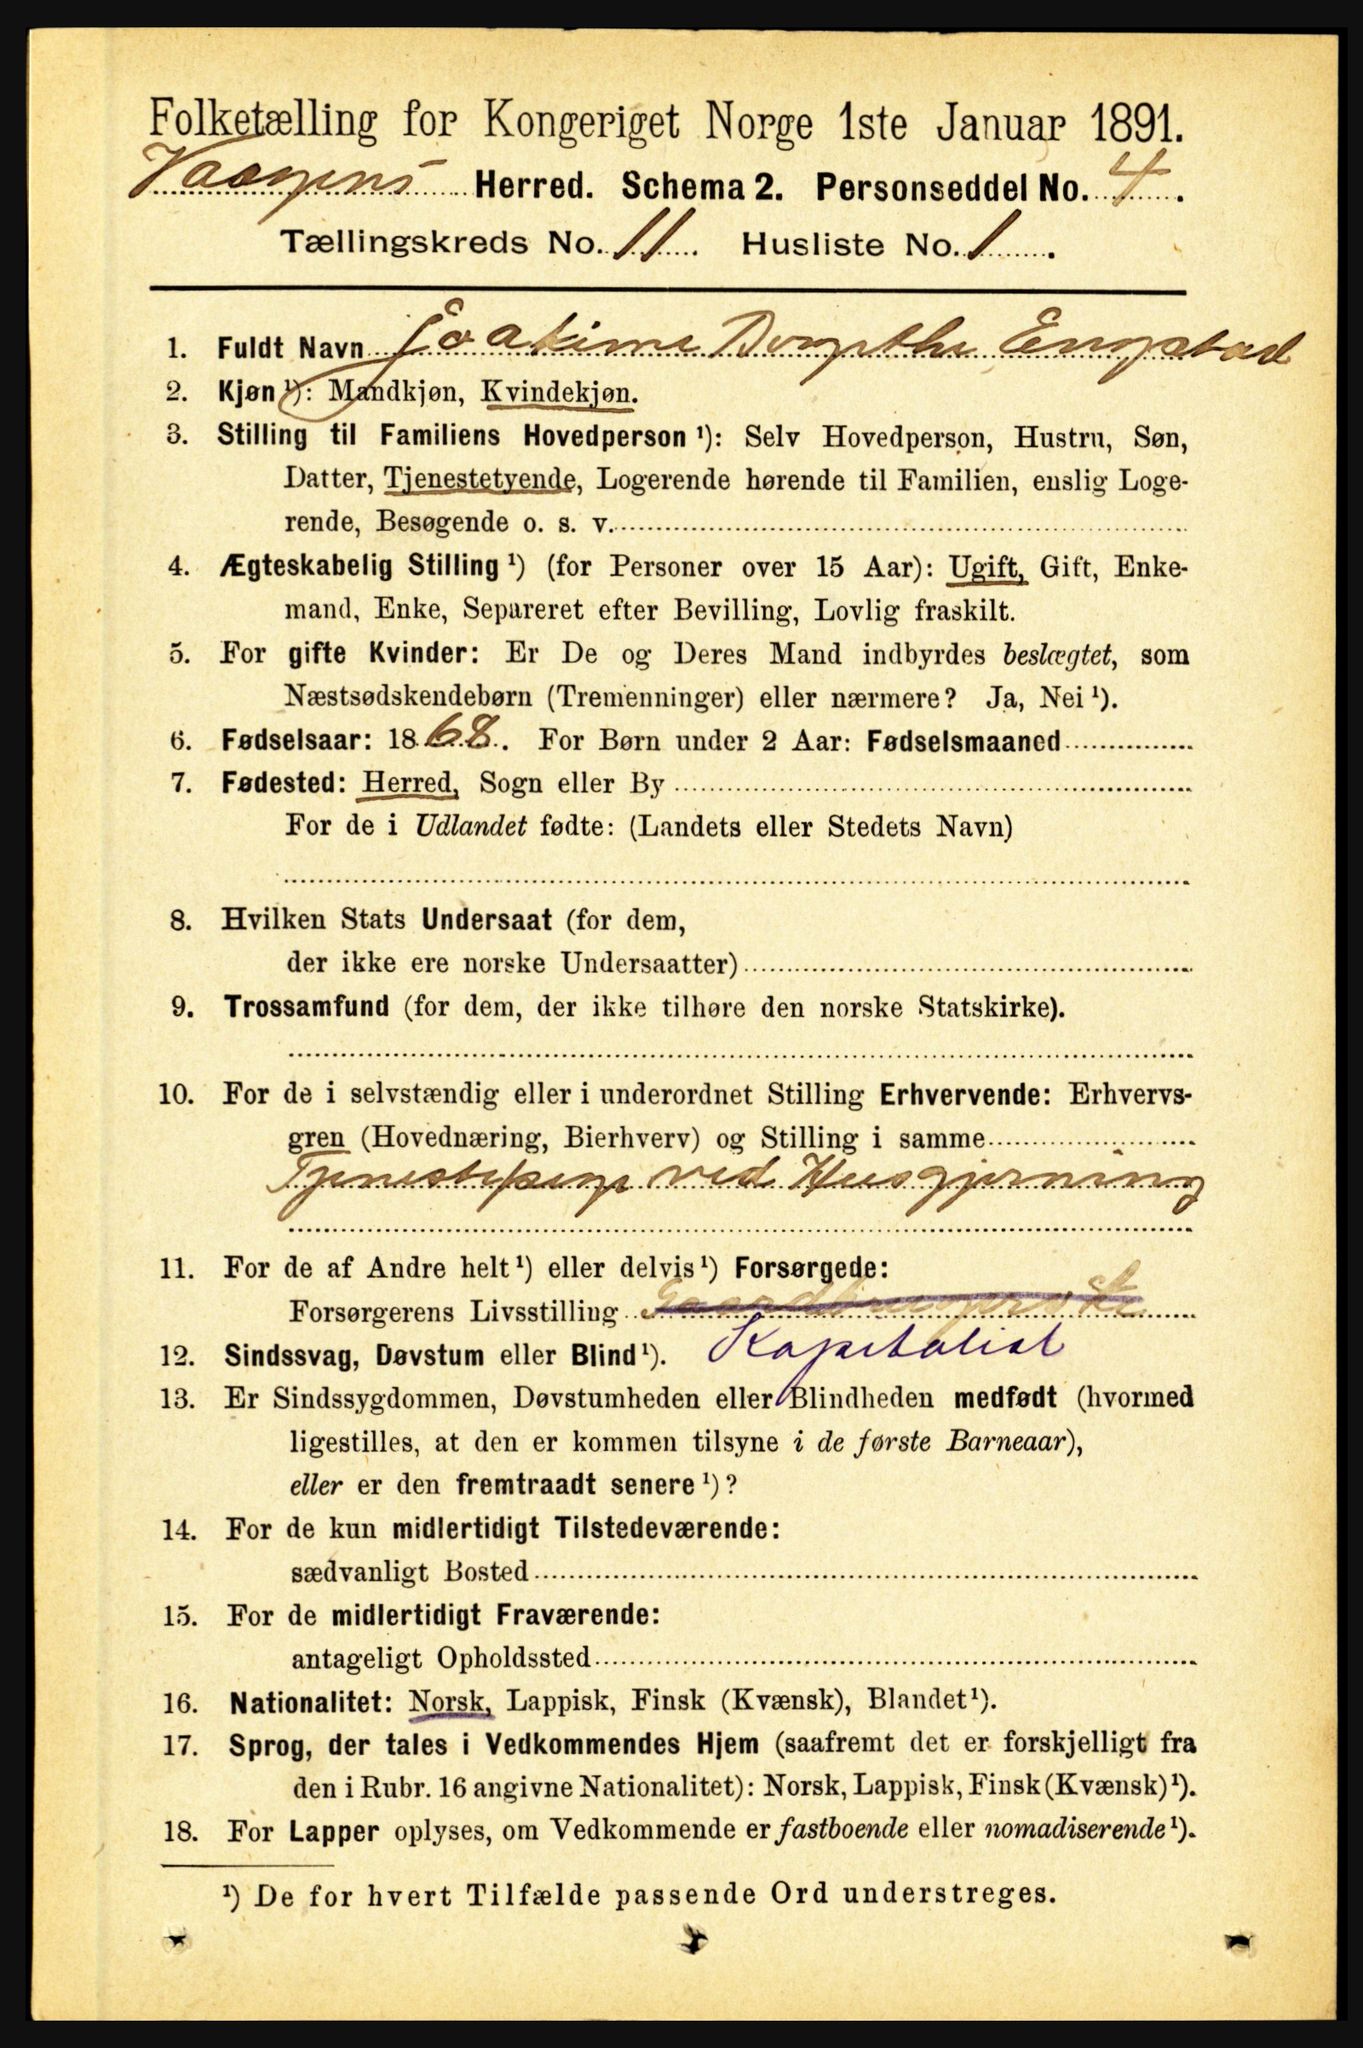 Folketælling for Kongeriget Norge 1ste Januar 1891.
Vaagens Herred. Schema 2. Personseddel No. 4.
Tællingskreds No. 11. Husliste No. 1.
1. Fuldt Navn Joakime Dorothe Engstad
2. Kjøn ¹): Mandkjøn, Kvindekjøn.
3. Stilling til Familiens Hovedperson ¹): Selv Hovedperson, Hustru, Søn,
Datter, Tjenestetyende, Logerende hørende til Familien, enslig Loge-
rende, Besøgende o. s. v.
4. Ægteskabelig Stilling ¹) (for Personer over 15 Aar): Ugift, Gift, Enke-
mand, Enke, Separeret efter Bevilling, Lovlig fraskilt.
5. For gifte Kvinder: Er De og Deres Mand indbyrdes beslægtet, som
Næstsødskendebørn (Tremenninger) eller nærmere? Ja, Nei ¹).
6. Fødselsaar: 1868. For Børn under 2 Aar: Fødselsmaaned
7. Fødested: Herred, Sogn eller By
For de i Udlandet fødte: (Landets eller Stedets Navn)
8. Hvilken Stats Undersaat (for dem,
der ikke ere norske Undersaatter)
9. Trossamfund (for dem, der ikke tilhøre den norske Statskirke).
10. For de i selvstændig eller i underordnet Stilling Erhvervende: Erhvervs-
gren (Hovednæring, Bierhverv) og Stilling i samme
Tjenestepige ved Husgjerning
11. For de af Andre helt ¹) eller delvis ¹) Forsørgede:
Forsørgerens Livsstilling
12. Sindssvag, Døvstum eller Blind ¹). Kapitalist
13. Er Sindssygdommen, Døvstumheden eller Blindheden medfødt (hvormed
ligestilles, at den er kommen tilsyne i de første Barneaar),
eller er den fremtraadt senere ¹)?
14. For de kun midlertidigt Tilstedeværende:
sædvanligt Bosted
15. For de midlertidigt Fraværende:
antageligt Opholdssted
16. Nationalitet: Norsk, Lappisk, Finsk (Kvænsk), Blandet ¹).
17. Sprog, der tales i Vedkommendes Hjem (saafremt det er forskjelligt fra
den i Rubr. 16 angivne Nationalitet): Norsk, Lappisk, Finsk (Kvænsk) ¹).
18. For Lapper oplyses, om Vedkommende er fastboende eller nomadiserende ¹).
¹) De for hvert Tilfælde passende Ord understreges.